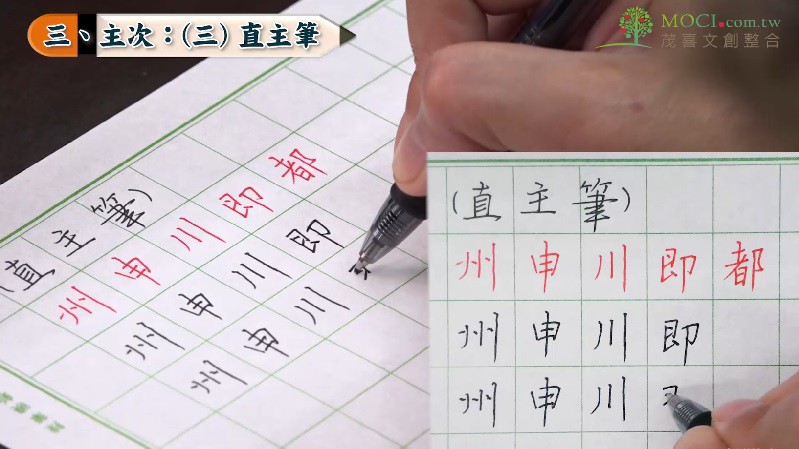 三、主次：(三) 直主筆
MOCI.com.tw
茂喜文創整合
(直主筆)
州申川即都
州申川即
州申川
(直主筆)
州申川即都
州申川即
州申川